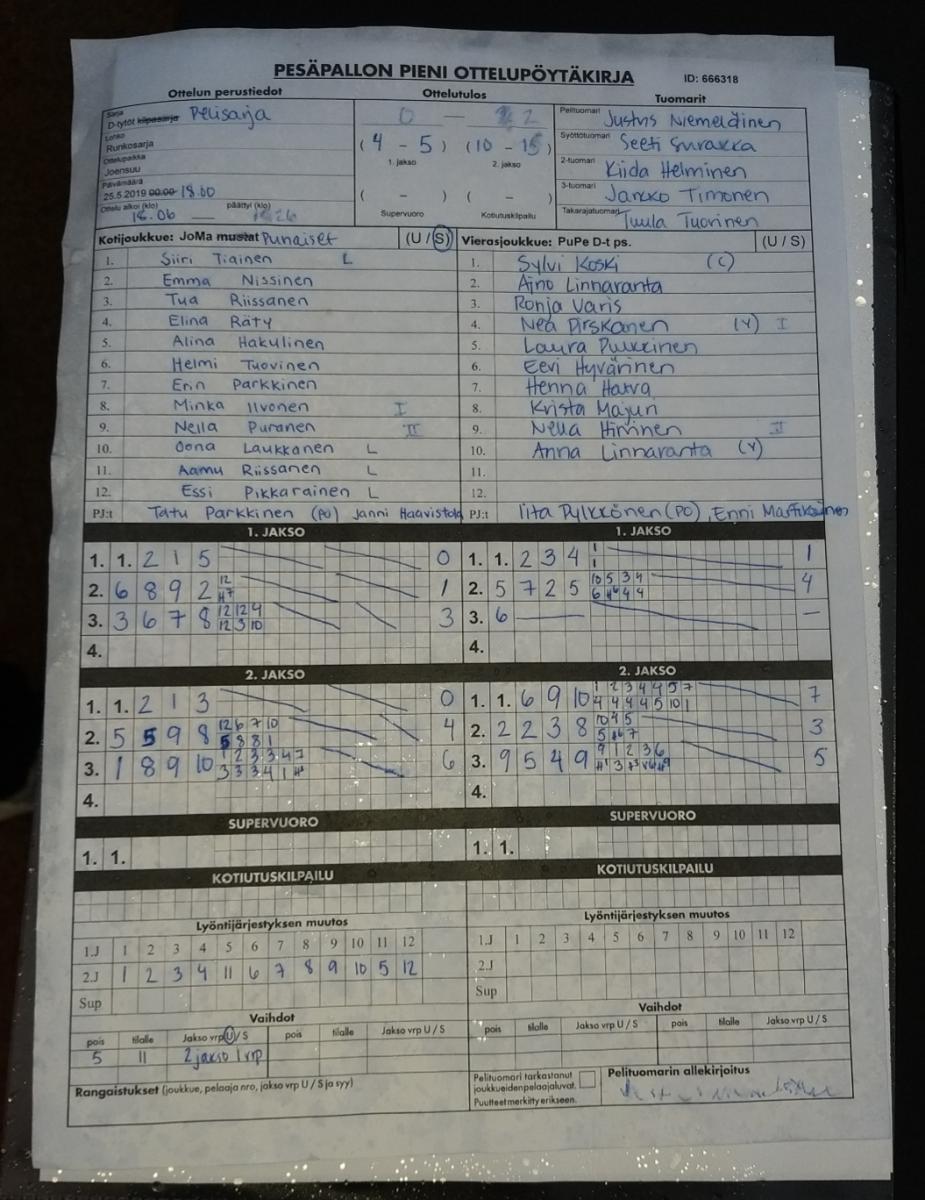 PESÄPALLON PIENI OTTELUPÖYTÄKIRJA ID: 666318
Ottelun perustiedot Ottelutulos Tuomarit
Sarja
D-tytöt kilpasarja Pelisarja
Lohko
Runkosarja
Ottelupaikka
Joensuu
Päivämäärä
25.5.2019 00:00 18.00
Ottelu alkoi (klo) päättyi (klo)
18.06
0 — 2
(4 - 5) (10 - 15)
1. jakso 2. jakso
( - ) ( - )
Supervuoro Kotiutuskilpailu
Pelituomari Justus Niemeläinen
Syöttötuomari Seeti Surakka
2-tuomari Kiida Helminen
3-tuomari Jarkko Timonen
Takarajatuomari Tuula Tuovinen
Kotijoukkue: JoMa mustat Punaiset (U / S)
1. Siiri Tiainen L
2. Emma Nissinen
3. Tua Riissanen
4. Elina Räty
5. Alina Hakulinen
6. Helmi Tuovinen
7. Erin Parkkinen
8. Minka Ilvonen I
9. Nella Puranen II
10. Oona Laukkanen L
11. Aamu Riissanen L
12. Essi Pikkarainen L
PJ:t Tatu Parkkinen (PO) Janni Haavistola
Vierasjoukkue: PuPe D-t ps. (U / S)
1. Sylvi Koski (C)
2. Aino Linnaranta
3. Ronja Varis
4. Nea Pirskanen (Y) I
5. Laura Pulkkinen
6. Eevi Hyvärinen
7. Henna Harva
8. Krista Majuri
9. Nella Hirvinen II
10. Anna Linnaranta (Y)
11.
12.
PJ:t Iita Pylkkönen (PO), Enni Martikainen
1. JAKSO
1. 1. 2 1 5 0
2. 6 8 9 2 12 1
3. 3 6 7 8 12 12 4 3
12 3 10
4.
1. JAKSO
1. 1. 2 3 4 1 1
1
2. 5 7 2 5 10 5 3 4 4
3. 6 —
4.
2. JAKSO
1. 1. 2 1 3 0
2. 5 5 9 8 12 6 7 10 4
5 8 8 1
3. 1 8 9 10 1 2 3 3 4 7 6
4.
2. JAKSO
1. 1. 6 9 10 1 2 3 4 4 5 7 7
4 4 4 4 5 10 1
2. 2 2 3 8 10 4 5 3
3. 9 5 4 9 9 1 2 3 6 5
4.
SUPERVUORO
1. 1.
SUPERVUORO
1. 1.
KOTIUTUSKILPAILU
KOTIUTUSKILPAILU
Lyöntijärjestyksen muutos
1.J 1 2 3 4 5 6 7 8 9 10 11 12
2.J 1 2 3 4 11 6 7 8 9 10 5 12
Sup
Lyöntijärjestyksen muutos
1.J 1 2 3 4 5 6 7 8 9 10 11 12
2.J
Sup
Vaihdot
pois tilalle Jakso vrp U / S pois tilalle Jakso vrp U / S
5 11 2 jakso 1 vrp
Vaihdot
pois tilalle Jakso vrp U / S pois tilalle Jakso vrp U / S
Rangaistukset (joukkue, pelaaja nro, jakso vrp U / S ja syy)
Pelituomari tarkastanut
joukkueidenpelaajaluvat.
Puutteetmerkittyerikseen.
Pelituomarin allekirjoitus